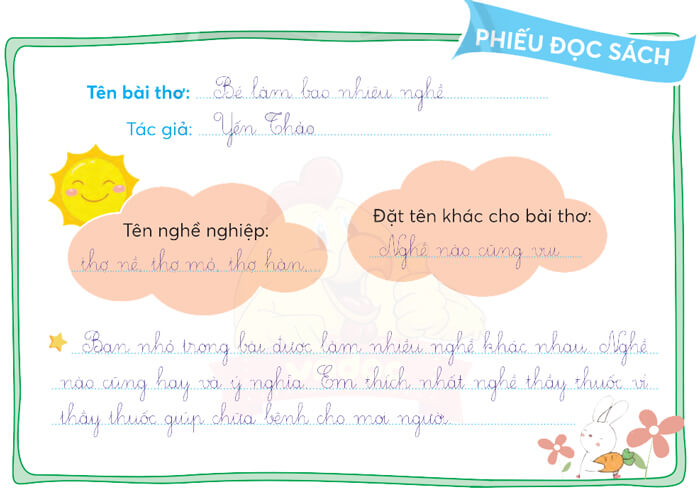 PHIẾU ĐỌC SÁCH
Tên bài thơ: Bé làm bao nhiêu nghề
Tác giả: Yến Thảo
Tên nghề nghiệp:
thợ nề, thợ mỏ, thợ hàn,...
Đặt tên khác cho bài thơ:
Nghề nào cũng vui
Bạn nhỏ trong bài được làm nhiều nghề khác nhau. Nghề
nào cũng hay và ý nghĩa. Em thích nhất nghề thầy thuốc vì
thầy thuốc giúp chữa bệnh cho mọi người.